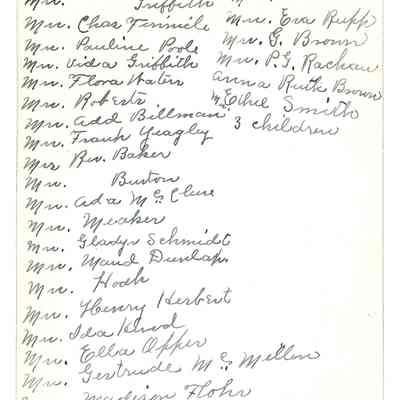 Mrs. Griffith
Mrs. Chas Tinnile
Mrs. Pauline Poole
Mrs. Vida Griffith
Mrs. Flora Waters
Mrs. Roberts
Mrs. Add Billman
Mrs. Frank Yeagley
Mrs Rev. Baker
Mrs. Burton
Mrs. Ada McClure
Mrs. Meaker
Mrs. Gladys Schmidt
Mrs. Maud Dunlap.
Mrs. Hook
Mrs. Henry Herbert
Mrs. Ida
Mrs. Ella Opper
Mrs. Gertrude McMillen
Madison Flohr
Mrs. Eva Rupp
Mrs. G. Brown
Mrs. P.G.
Anna Ruth Brown
Mrs. Ethel Smith
3 children